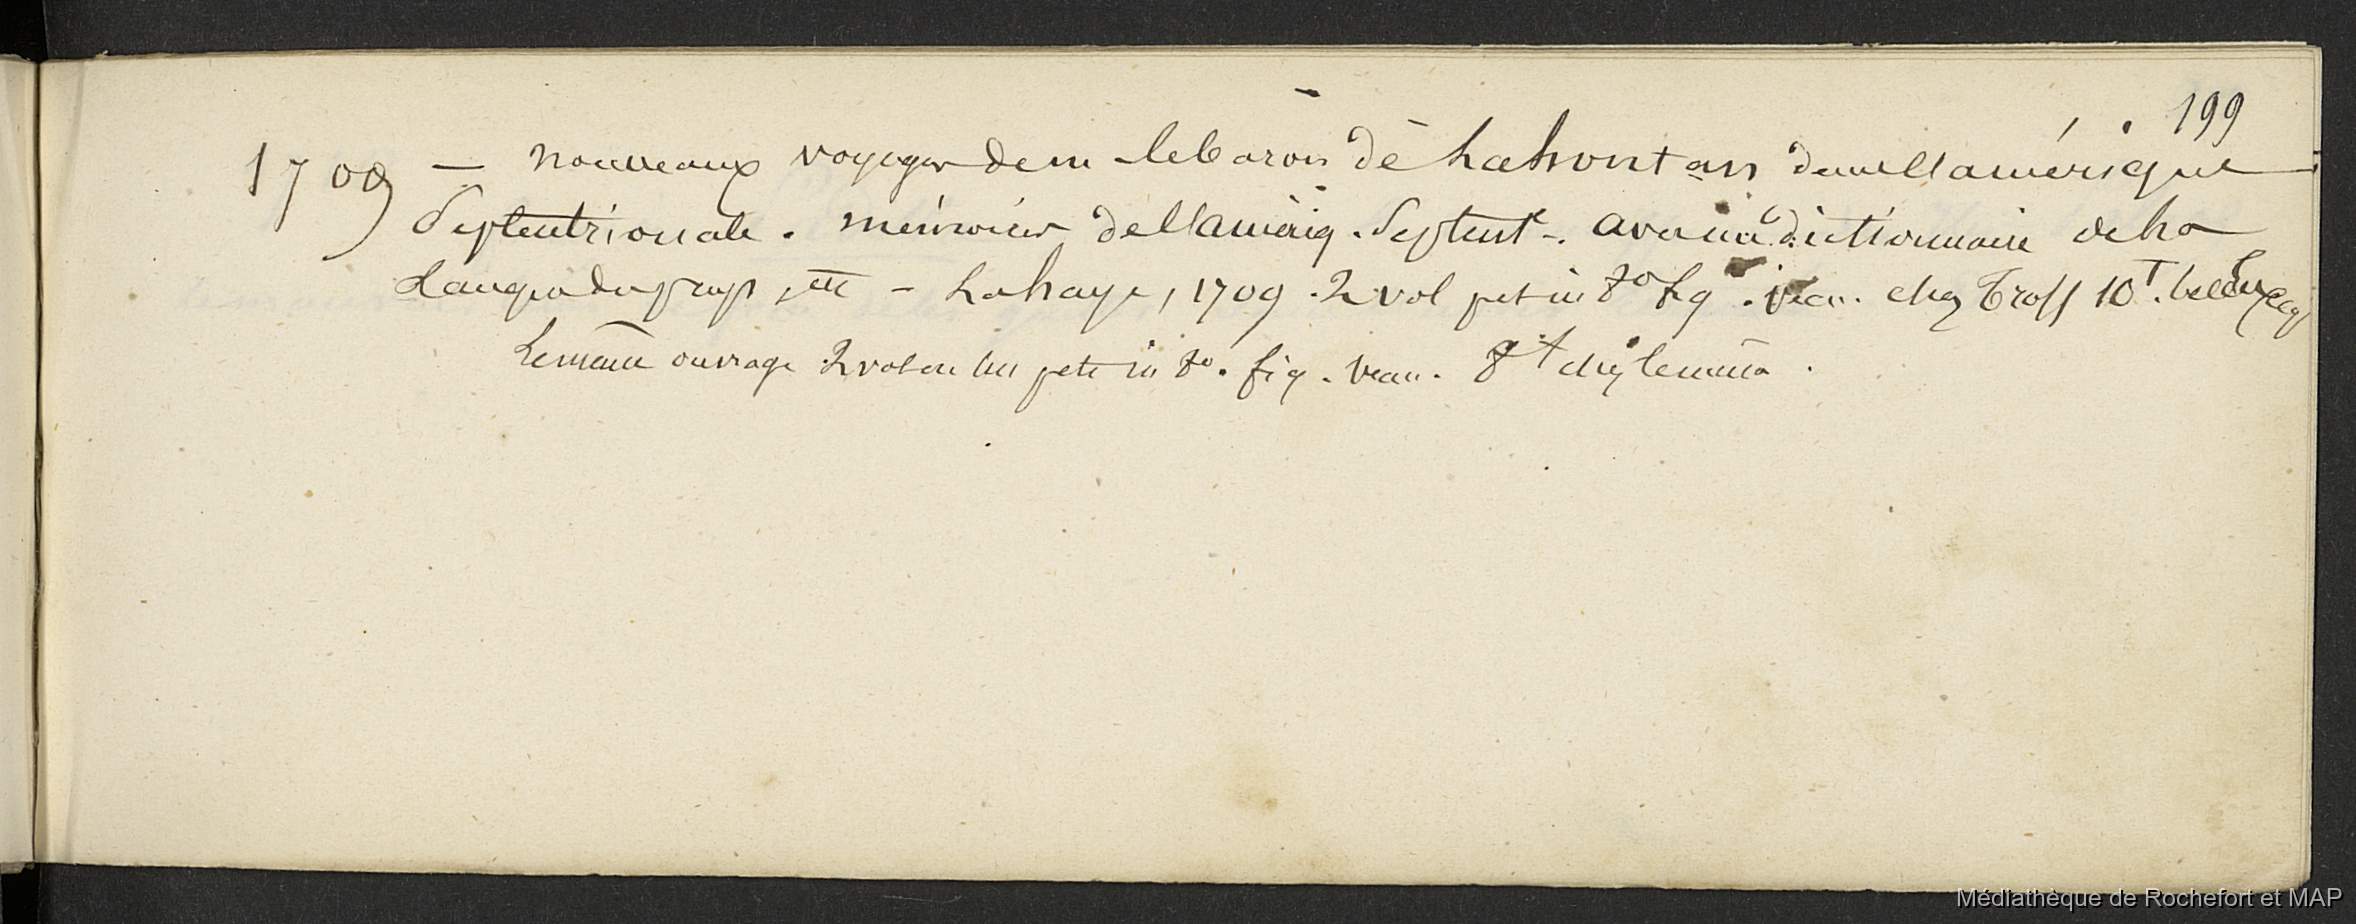 199
1709 — nouveaux voyages de m le baron de Lahontan dans l'amérique
Septentrionale. mémoires de l'amériq. Septent. avec un dictionnaire de la
Langue du pays, etc — La haye, 1709. 2 vol pet in 8o fig. veau. chez Tross 10f. bel ex
Le même ouvrage 2 vol en un pet in 8o. fig. veau. 8f chez le même.
Médiathèque de Rochefort et MAP